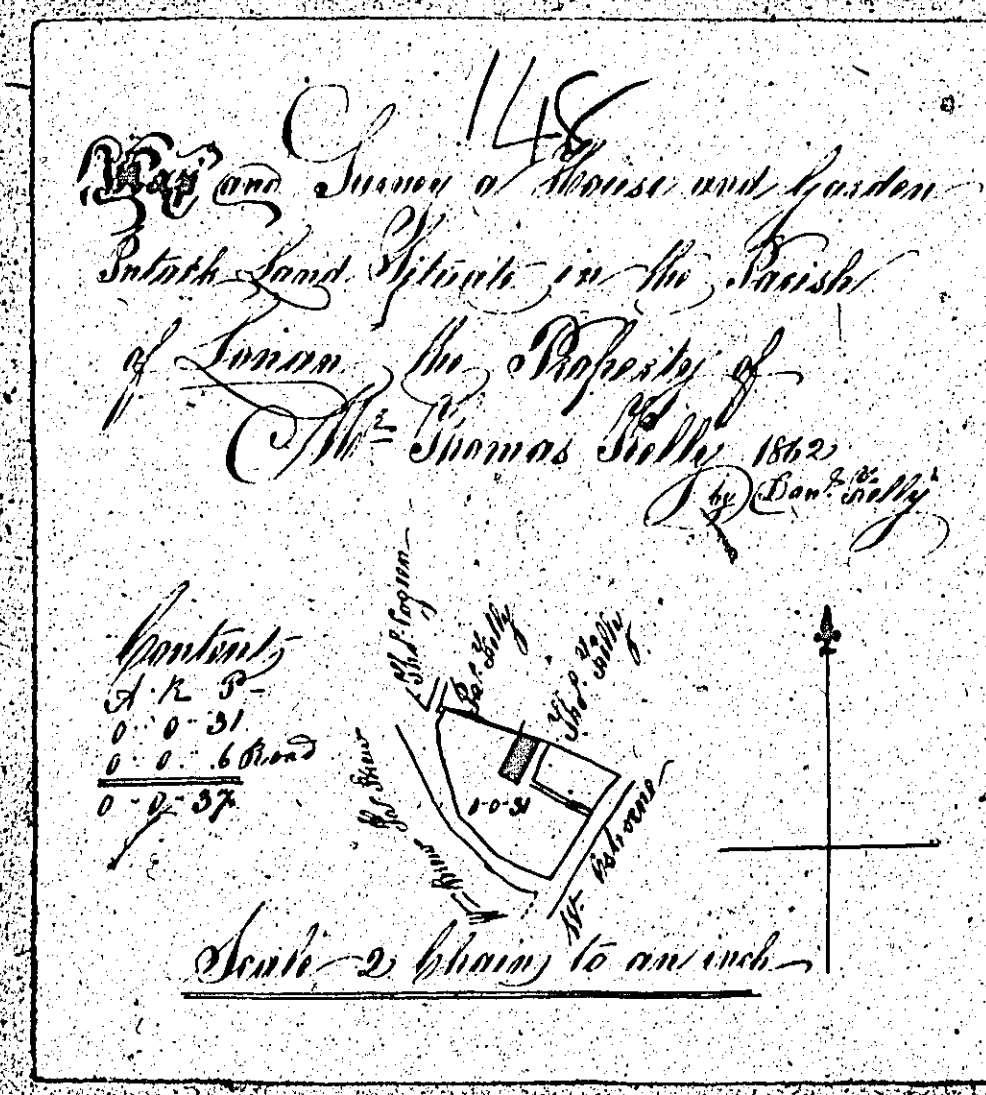 148
Map and Survey a House and Garden
Intack Land Situate in the Parish
of Lonan the Property of
Mr Thomas Kelly 1862
by Danl Kelly
Content
A R P
0 0 31
0 0 6 Road
0 0 37
Thos
Kelly
Thos Kelly
0-0-31
Scale 2 Chains to an inch